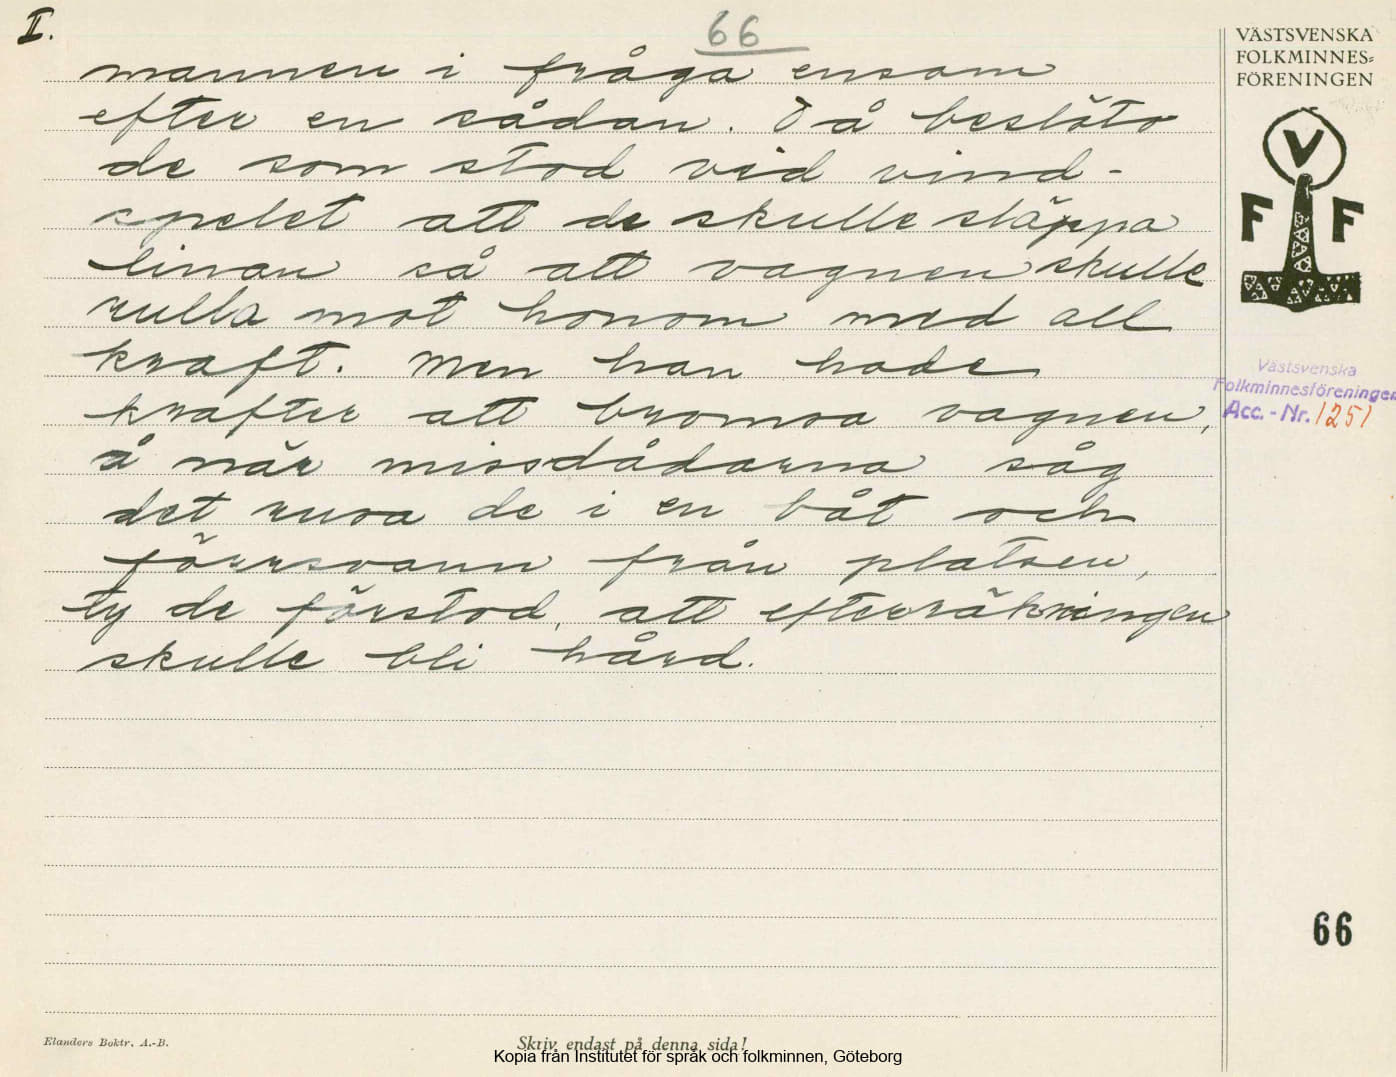 II.
66
mannen i fråga ensam
efter en sådan. Då beslöto
de som stod vid vind-
spelet att de skulle släppa
linan så att vagnen skulle
rulla mot honom med all
kraft. Men han hade
krafter att bromsa vagnen,
å när missdådarna såg
det rusa de i en båt och
försvann från platsen,
ty de förstod, att efterräkningen
skulle bli hård.
VÄSTSVENSKA
FOLKMINNES=
FÖRENINGEN
V
F F
Västsvenska
Folkminnesföreningen
Acc. - Nr. 1251
66
Elanders Boktr. A.-B.
Skriv endast på denna sida!
Kopia från Institutet för språk och folkminnen, Göteborg